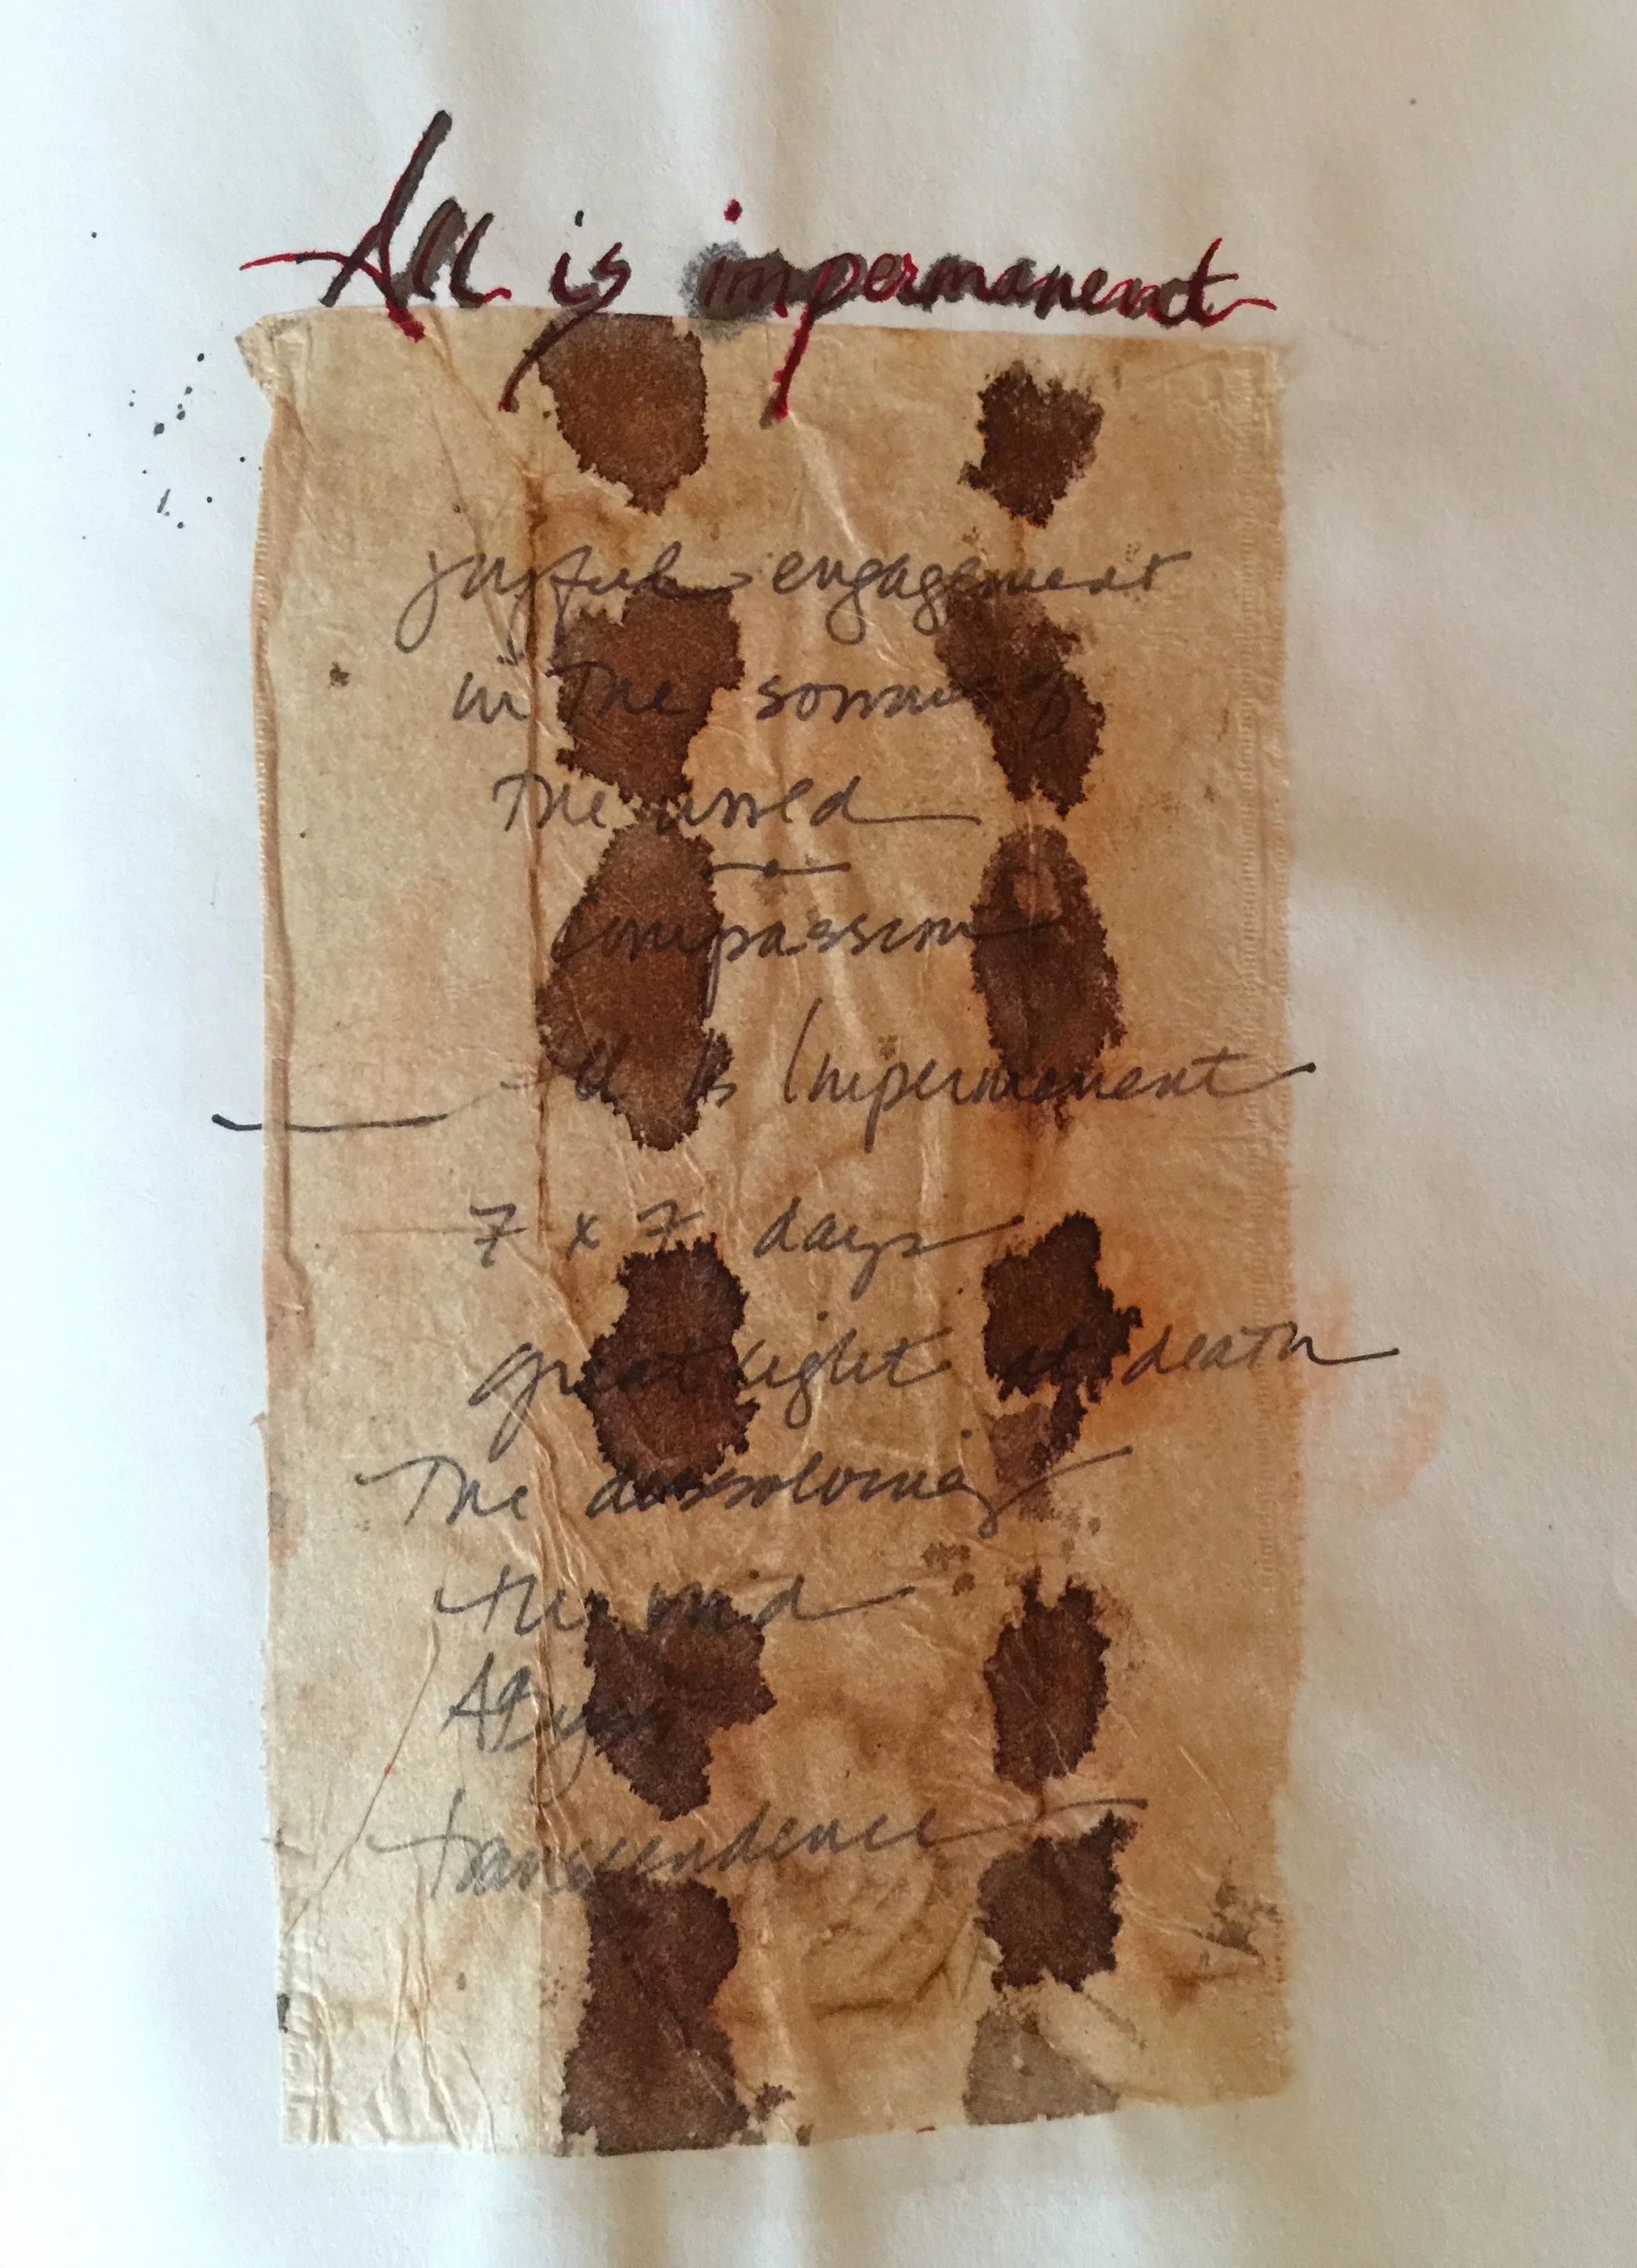 All is impermanent
joyful engagement
in the sorrow of
the world
compassion
All Is Impermanent
7 x 7 days
great light at death
The dissolving
the void
transcendence